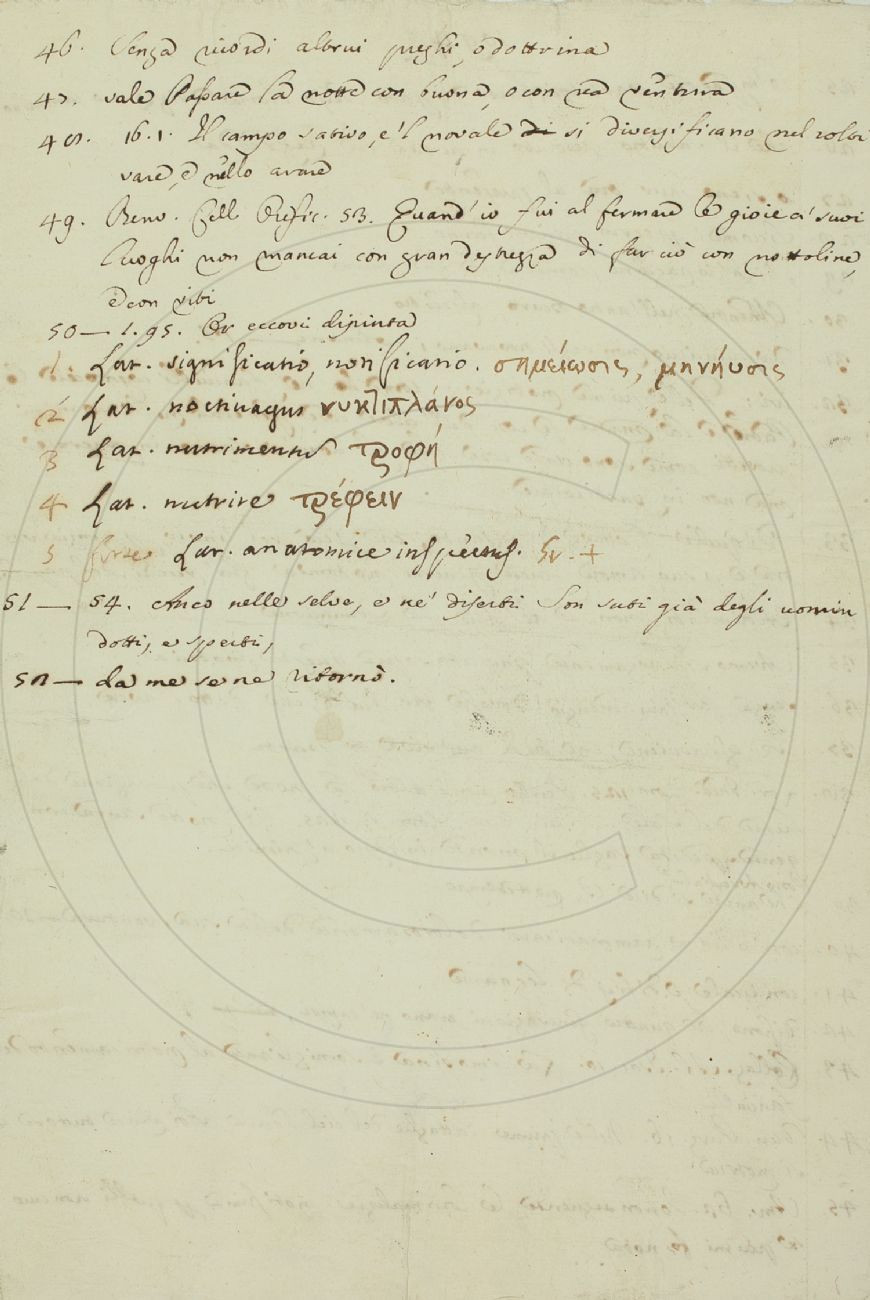 46. Senza ricordi altrui preghi, o dottrina
47. vale Passare la notte con buona, o con rea ventura
48. 16.1. Il campo sativo, e 'l novale di si diversificano nel colti
vare, e nello arare
49. Benv. Cell. Orefic. 53. Quand' io fui al fermare le gioie a' suoi
luoghi non mancai con gran destrezza di far ciò con nottoline,
e con viti
50 — 1. 95. Or eccovi dipinta
1. Lat. significatio, notificatio. σημείωσις, μηνήυσις
2 Lat. noctivagus νυκτιπλάνος
3 Lat. nutrimentum τροφή
4 Lat. nutrire τρέφειν
5 forse Lat. anatomice inspectus. +
51 — 54. Anco nelle selve, e ne' diserti son suti già degli uomin
dotti, e sperti,
52 — da me se ne ritornò.